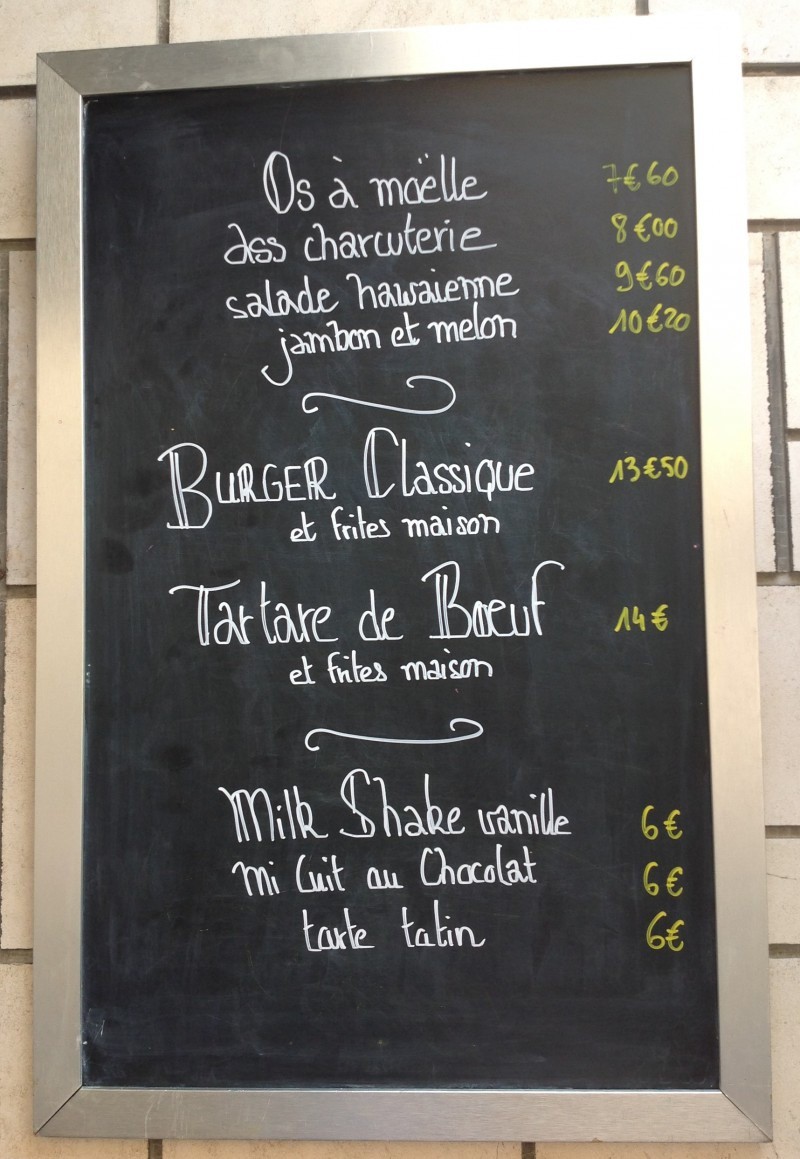 Os à moëlle 7€60
Ass charcuterie 8€00
salade hawaienne 9€60
jambon et melon 10€20
BURGER Classique 13€50
et frites maison
Tartare de Boeuf 14€
et frites maison
Milk Shake vanille 6€
Mi Cuit au Chocolat 6€
tarte tatin 6€